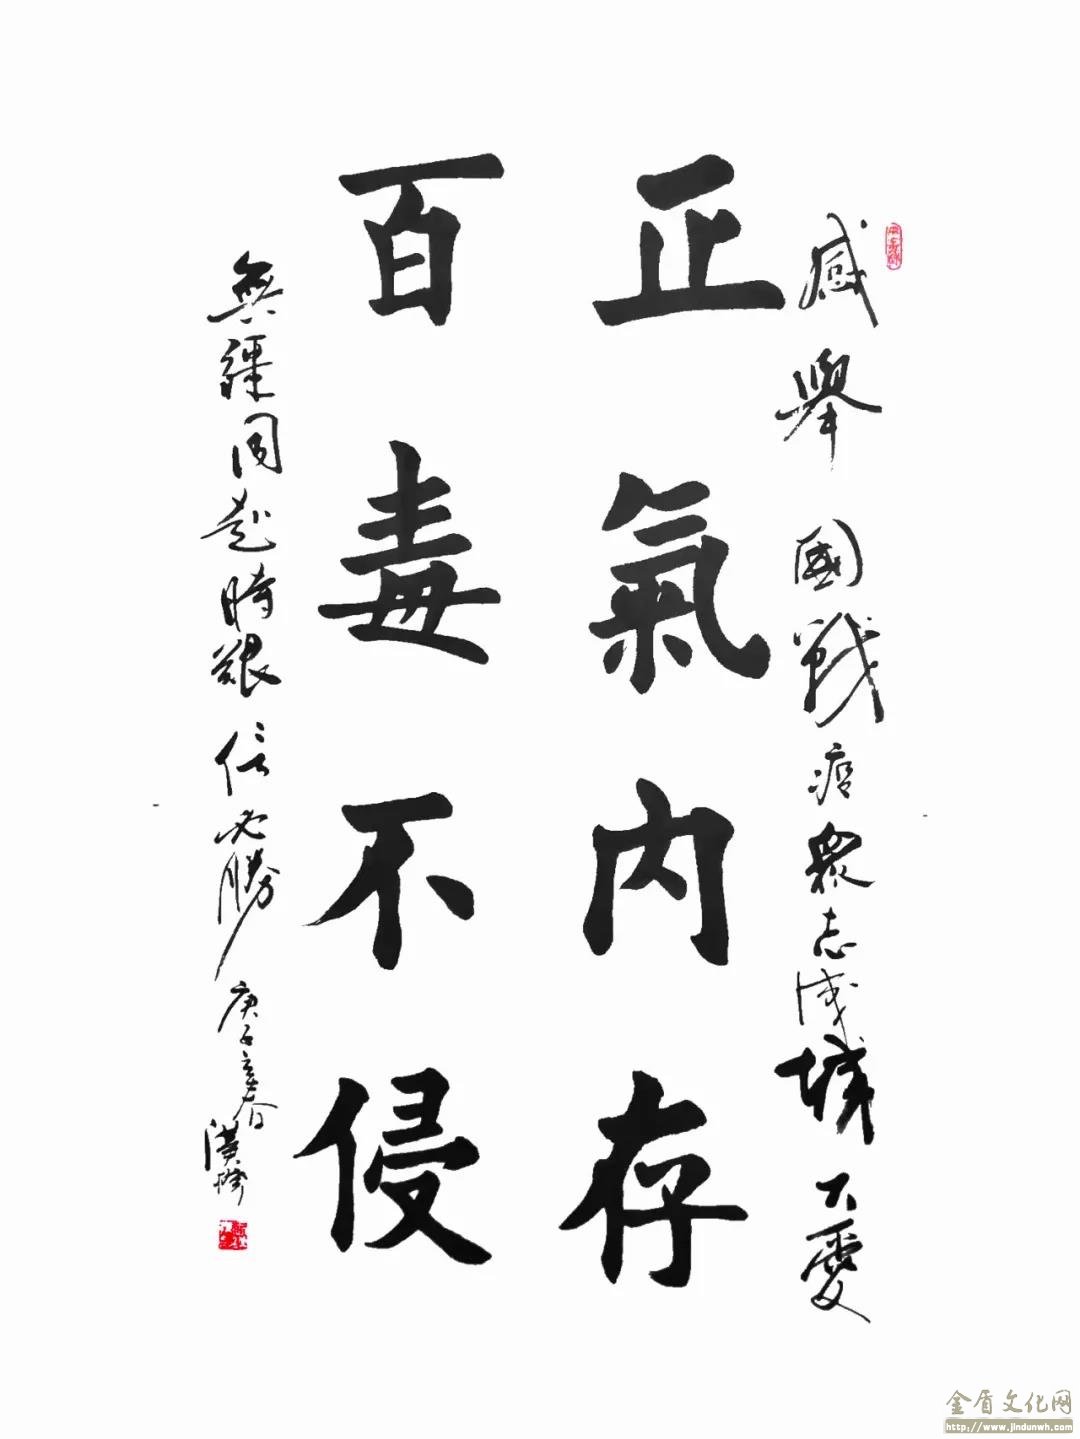 感舉國戰疫眾志成城大愛
正氣内存
百毒不侵
無疆同赴時艱信必勝庚子立春漢
金盾文化网
http://www.jindunwh.com